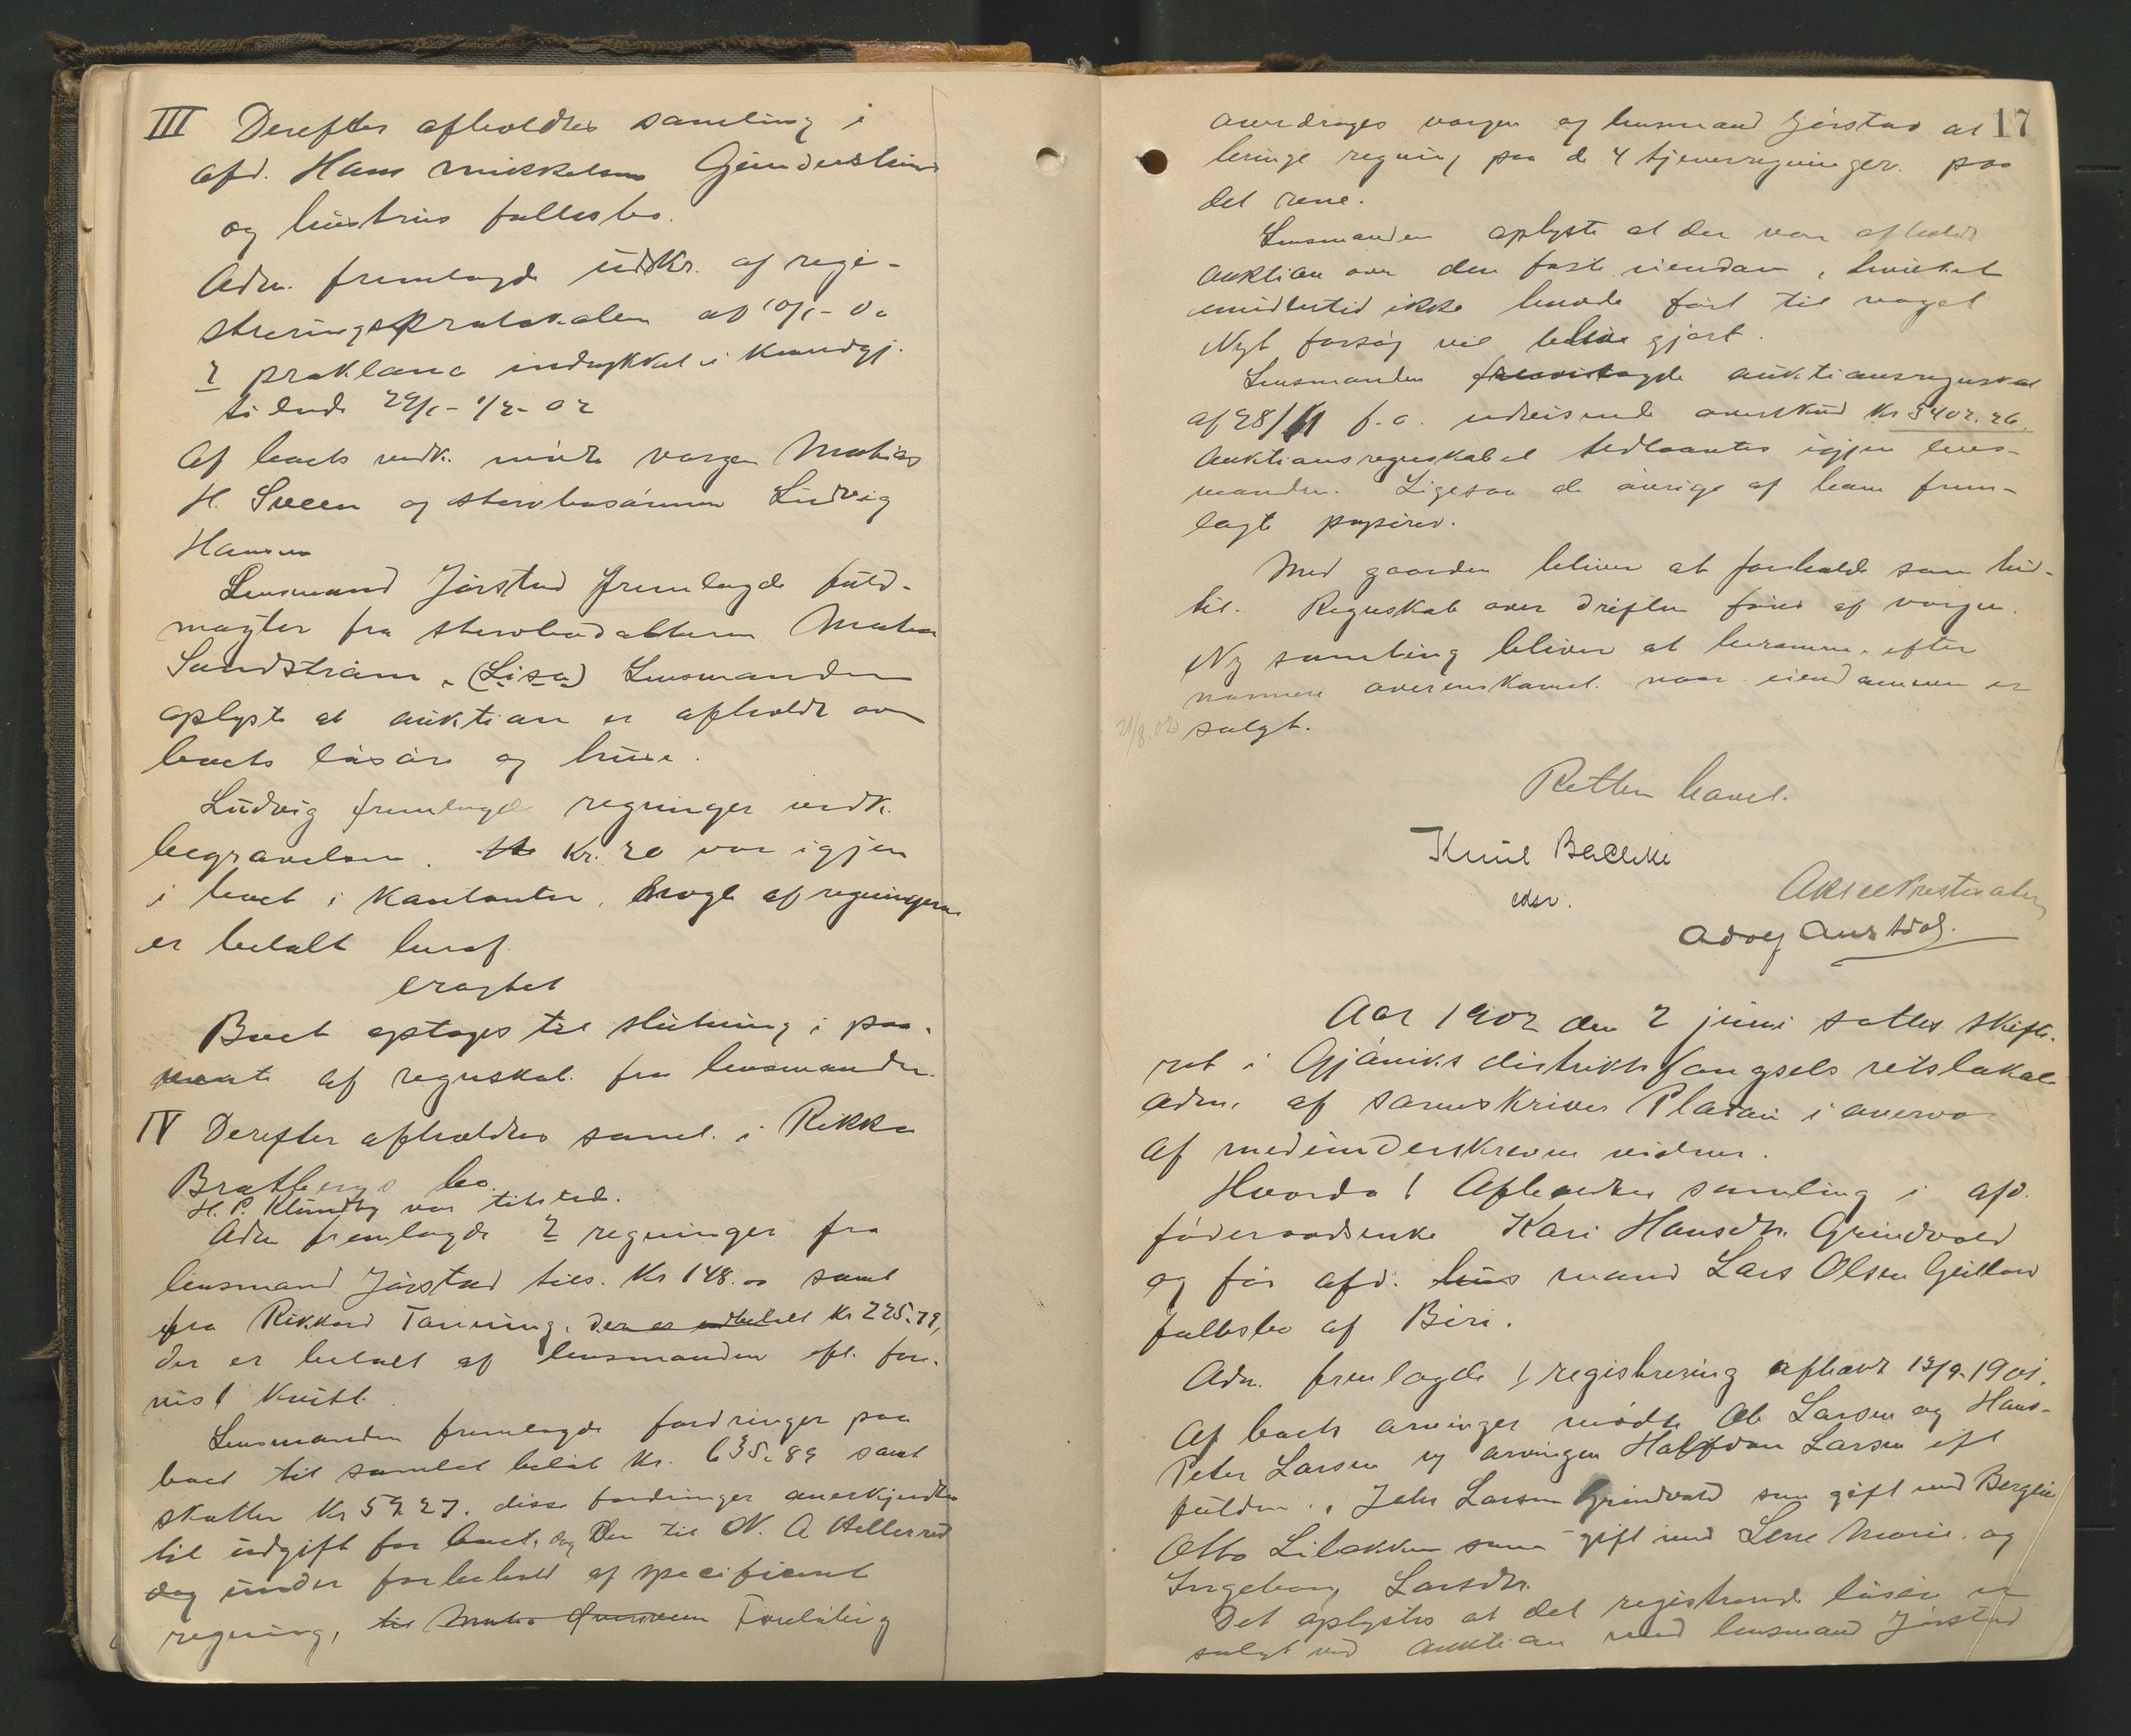 III Derefter afholdtes samling i
afd. Hans Mikkelsen
og hustrus fællesbo.
Adm. fremlagde udskr. af regi-
streringsprotokolen af 10/1 - 02
2 proklama indrykket i Kundgj.
tidende 29/1 - 1/2 - 02
Af boets vedk. mødte vergen Mathias
H. Sveen og stervbosønnen Ludvig
Hansen
Lensmand Jørstad fremlagde fuld-
magter fra stervbodatteren
Sandstrøm, (Lisa) Lensmanden
oplyste at auktion er afholdt over
boets løsøre og huse.
Ludvig fremlagde regninger vedk.
begravelsen. Kr. 20 var igjen
i boet i kontanter, nogle af regningerne
er betalt heraf.
eragtet
Boet optages til slutning i paa-
vente af regnskab fra lensmanden.
IV Derefter afholdtes saml. i Rikka
Bratbergs bo.
H. P. Klundby var tilsted.
Adm fremlagde 2 regninger fra
lensmand Jørstad tils. Kr 148.00 samt
fra Rikkard Tanning, der er udbetalt Kr 225.79,
der er betalt af lensmanden efl. fore-
vist kvitt.
Lensmanden fremlagde fordringer paa
boet til samlet beløb Kr. 635.89 samt
skatter Kr 59.27. disse fordringer anerkjendtes
til udgift for boet, dog den til N. A Hellerud
dog under forbehold af specificeret
regning, til Foreløbig
17
overdrages vergen og lensmand Jørstad at
bringe regning paa de 4 tjenerregninger paa
det rene.
Lensmanden oplyste at der var afholdt
auktion over den faste eiendom, hvilket
imidlertid ikke havde ført til noget
Nyt forsøg vil blive gjort.
Lensmanden fremlagde auktionsregnskab
af 28/11 f.a. udvisende overskud Kr 3402.26.
Auktionsregnskabet tedlaantes igjen lens-
manden. Ligesaa de øvrige af ham frem-
lagte papirer.
Med gaarden bliver at forholde som hid-
til. Regnskab over driften føres af vergen.
Ny samling bliver at beramme, efter
nærmere overenskomst. naar eiendommen er
21/8.02 solgt.
Retten hævet.
Knut Bæckke
edsv.
Adolf Austdal.
Aar 1902 den 2 juni sattes skifte-
ret i Gjøviks distriktsfængsels retslokale
adm. af sorenskriver Platou i overvær
af medunderskrevne vidner.
Hvorda I Afholdtes samling i afd.
føderaadsenke Kari Hansdtr. Grindvold
og før afd. mand Lars Olsen
fællesbo af Biri.
Adm. fremlagde 1) registrering afhavt 13/9. 1901.
Af boets arvinger mødte Ole Larsen og Hans-
Peter Larsen og arvingen Halfdan Larsen efl
fuldm., Johs Larsen Grindvold som gift med Berglie
Otto Lilokken som gift med Lene Marie og
Ingeborg Larsdtr.
Det oplystes at det registrerede løsøre er
solgt ved auktion ved lensmand Jørstad